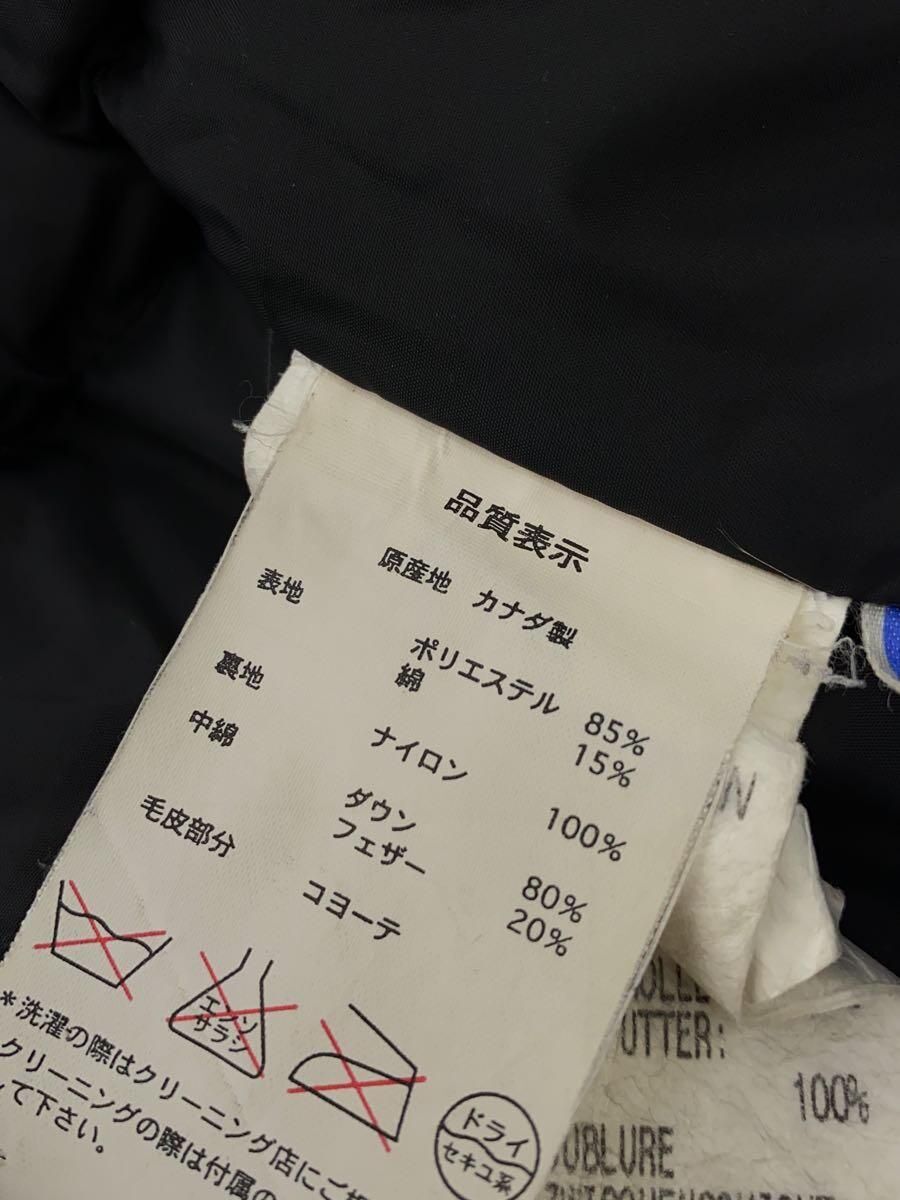 品質表示
原産地 カナダ製
表地 ポリエステル 85%
綿 15%
裏地 ナイロン 100%
中綿 ダウン 80%
フェザー 20%
毛皮部分 コヨーテ
エンソ
サラシ
ドライ
セキユ系
*洗濯の際はクリーニング店にご
クリーニングの際は付属の
して下さい。
UTTER:
100%
UBLURE